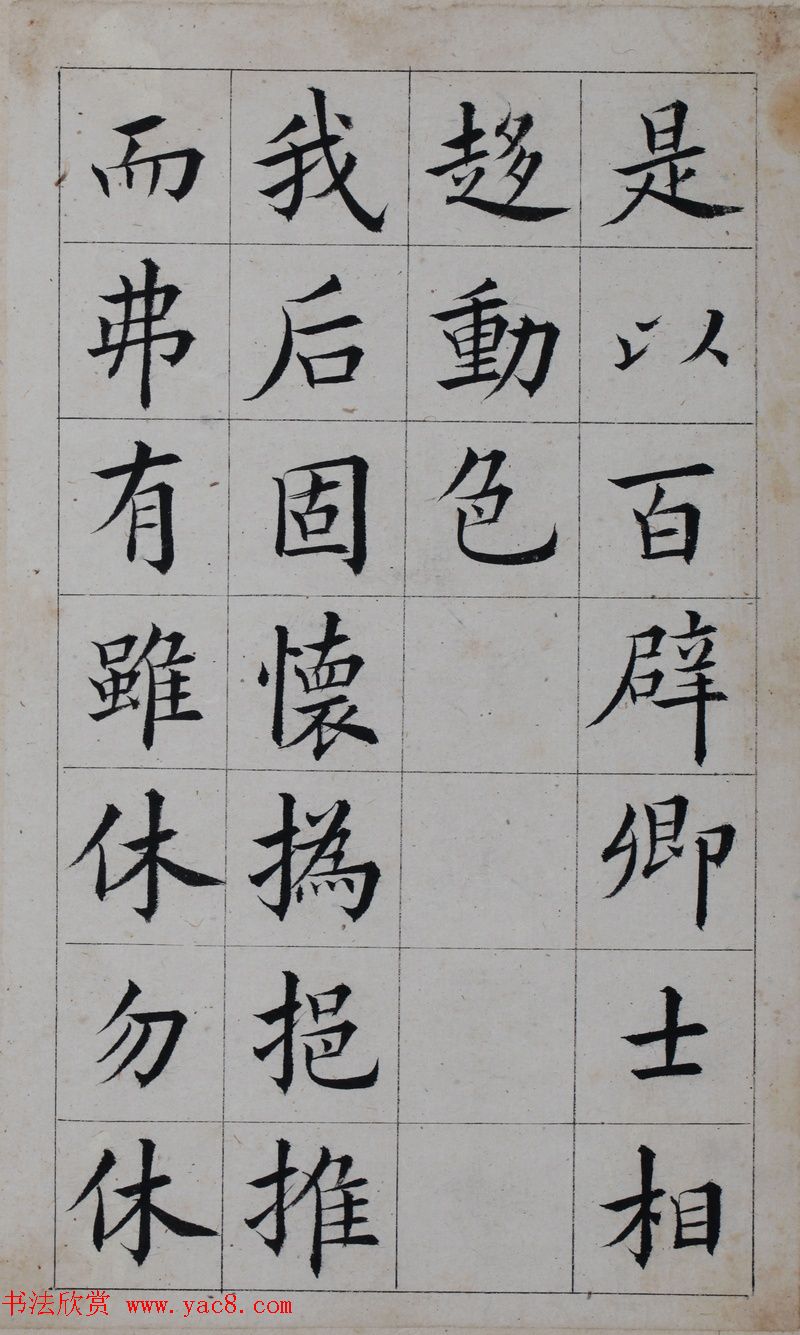 是以百辟卿士相
趍動色
我后固懷撝挹推
而弗有雖休勿休
书法欣赏 www.yac8.com